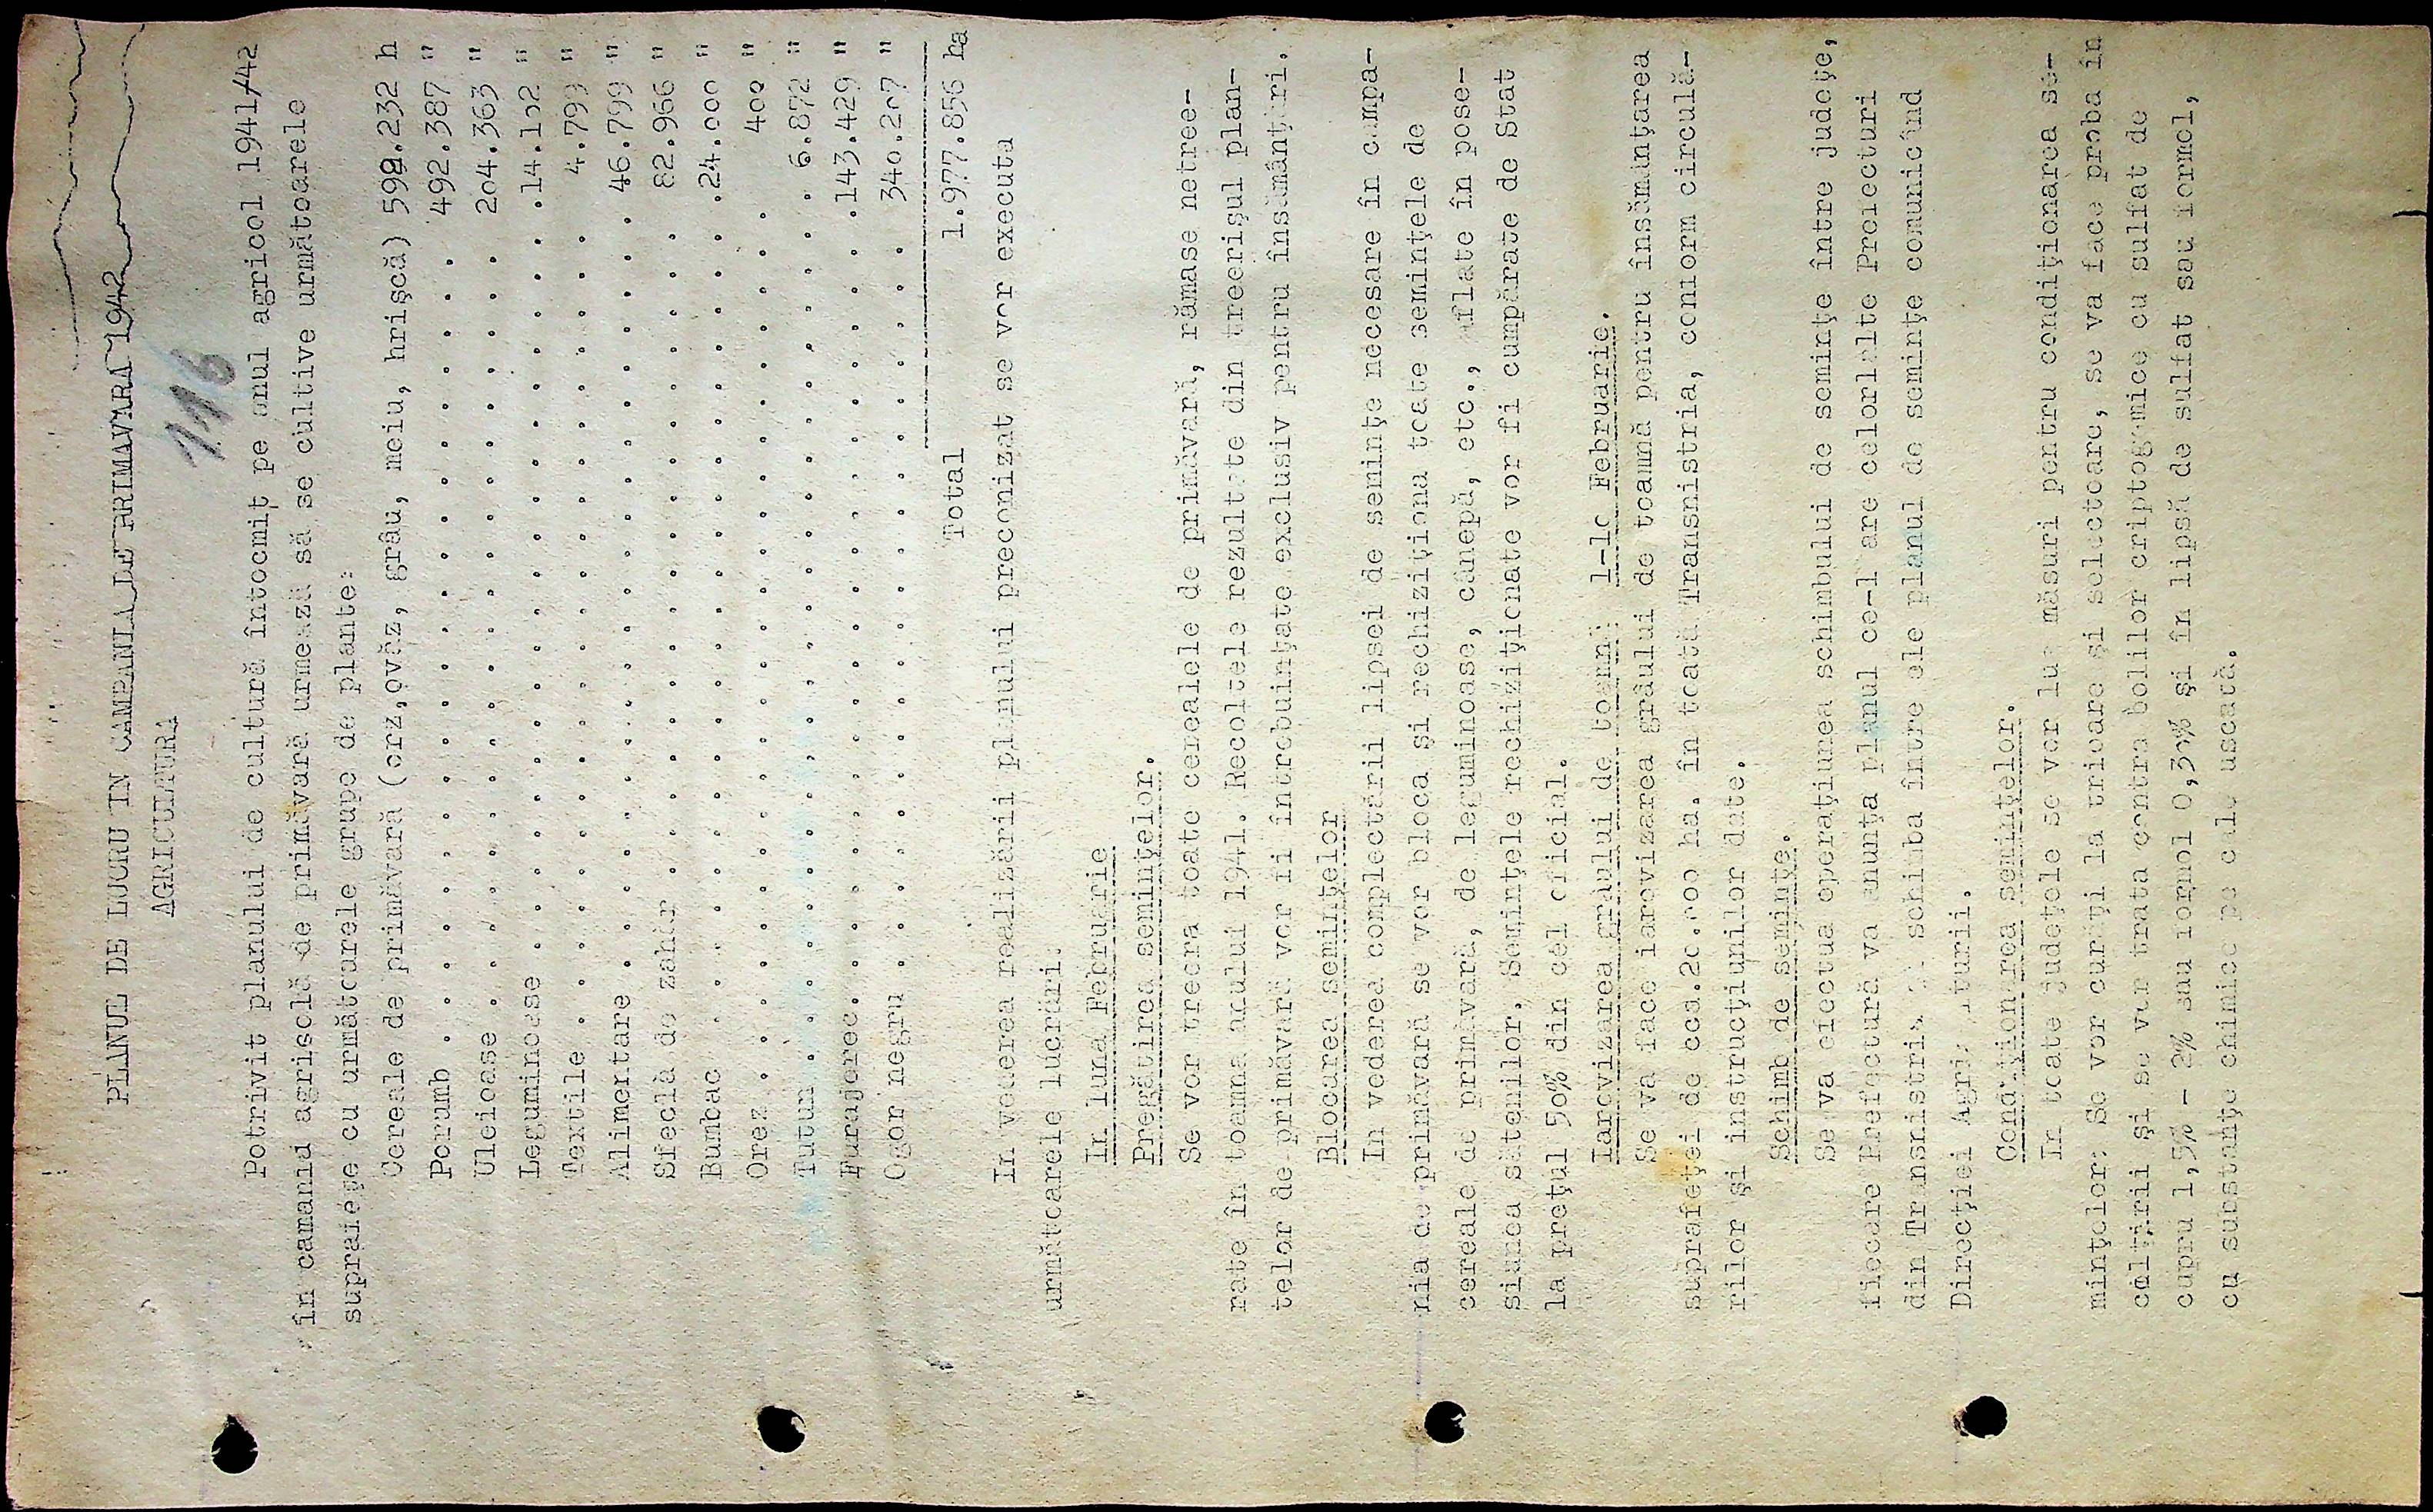 PLANUL DE LUCRU IN CAMPANIA DE PRIMAVARA 1942
116
AGRICULTURA
Potrivit planului de cultură întocmit pe anul agricol 1941/42
în camania agriсolă de primăvară urmează să se cultive următoarele
suprafeţe cu următoarele grupe de plante:
Cereale de primăvară (orz,ovăz, grâu, meiu, hrişcă) 598.232 h
Porumb . . . . . . . . . . . . . . . . . 492.387 "
Uleioase . . . . . . . . . . . . . . . . 204.363 "
Leguminoase . . . . . . . . . . . . . . .14.102 "
Textile . . . . . . . . . . . . . . . . . 4.793 "
Alimentare . . . . . . . . . . . . . . . 46.799 "
Sfeclă de zahăr . . . . . . . . . . . . . 82.966 "
Bumbac . . . . . . . . . . . . . . . . .24.000 "
Orez . . . . . . . . . . . . . . . . . . 400 "
Tutun . . . . . . . . . . . . . . . . . 6.872 "
Furajere. . . . . . . . . . . . . . . .143.429 "
Ogor negru . . . . . . . . . . . . . . 340.207 "
Total 1.977.856 ha
In vederea realizării planului preconizat se vor executa
următoarele lucrări:
In luna Februarie
Pregătirea seminţelor.
Se vor treera toate cerealele de primăvară, rămase netree-
rate în toamna anului 1941. Recoltele rezultate din treerişul plan-
telor de primăvară vor fi întrebuinţate exclusiv pentru însămânţări.
Blocarea seminţelor
In vederea complectării lipsei de seminţe necesare în campa-
nia de primăvară se vor bloca şi rechiziţiona toate seminţele de
cereale de primăvară, de leguminoase, cânepă, etc., aflate în pose-
siunea sătenilor. Seminţele rechiziţionate vor fi cumpărate de Stat
la preţul 50% din cel oficial.
Iarovizarea grâului de toamnă: 1-10 Februarie.
Se va face iarovizarea grâului de toamnă pentru însămânţarea
suprafeţei de cca.20.000 ha. în toată Transnistria, conform circulă-
rilor şi instrucţiunilor date.
Schimb de seminţe.
Se va efectua operaţiunea schimbului de seminţe între judeţe,
fiecare Prefectură va anunţa planul ce-l are celorlalte Prefecturi
din Transnistria schimba între ele planul de seminţe comunicând
Direcţiei Agriculturii.
Condiţionarea seminţelor.
In toate judeţele se vor lua măsuri pentru condiţionarea se-
minţelor: Se vor curăţi la trioare şi selectoare, se va face proba în
colţării şi se vor trata contra bolilor criptogamice cu sulfat de
cupru 1,5% - 2% sau formol 0,30% şi în lipsă de sulfat sau formol,
cu substanţe chimice pe cale uscată.